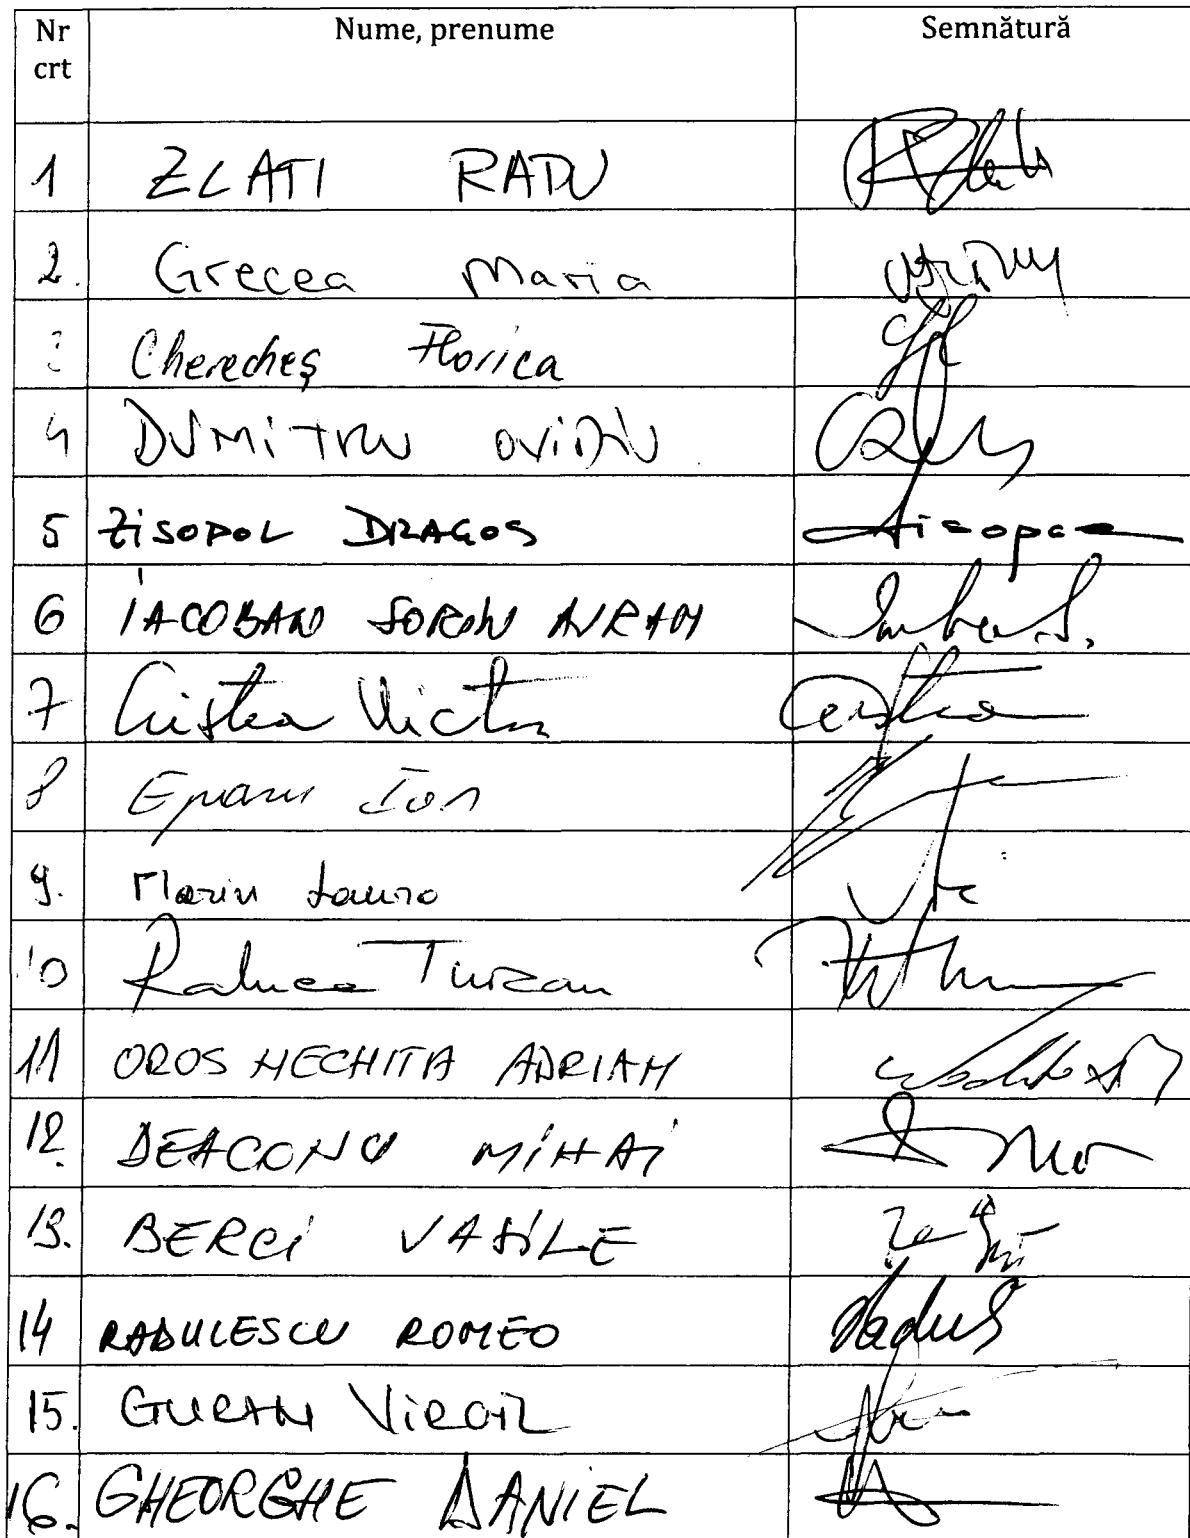 Nr crt Nume, prenume Semnătură
1 ZLATI RADU
2. Grecea Maria
3 Cherecheș Florica
4 DUMITRU OVIDIU
5 ZISOPOL DRAGOS
6 IACOBAN SORIN AVRAM
7 Cristea Victor Cristea
8 Epuran Ion
9. Marin Laura
10 Raluca Turcan
11 OROS NECHITA ADRIAN
12. DEACONU MIHAI
13. BERCI VASILE
14 RADULESCU ROMEO
15. GURAN VIRGIL
16. GHEORGHE DANIEL